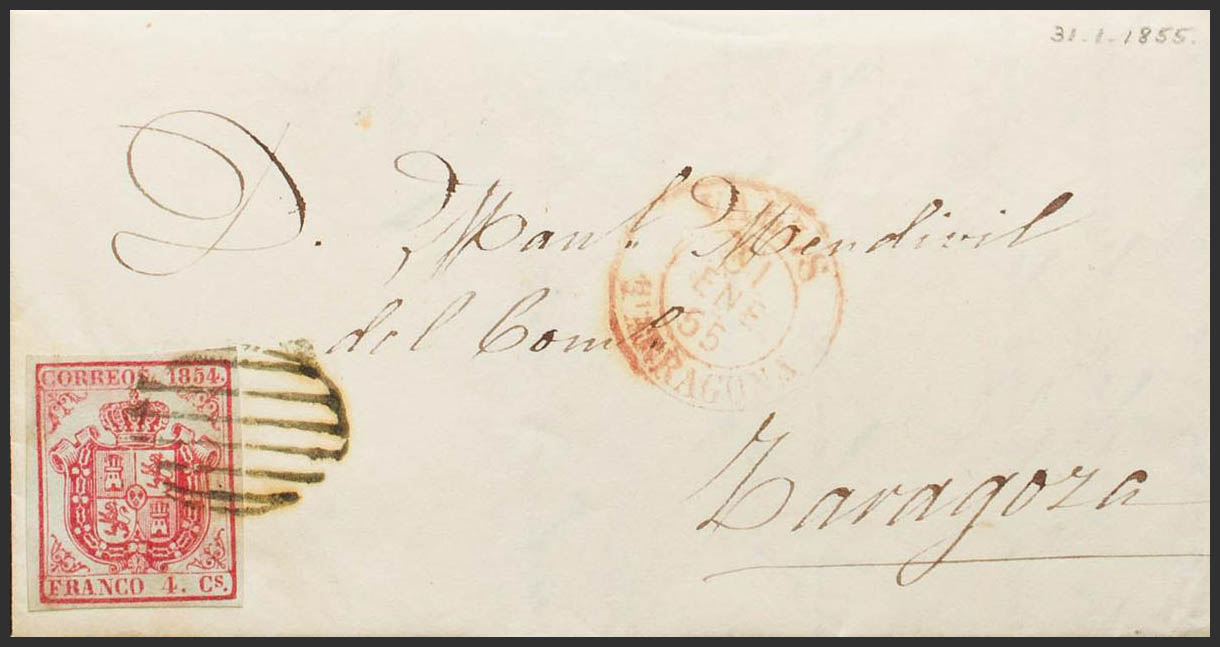 31-1-1855.
D. Man.l Mendivil
del Com.
Zaragoza
31
ENE
55
TARRAGONA
CORREOS. 1854.
FRANCO 4. Cs.